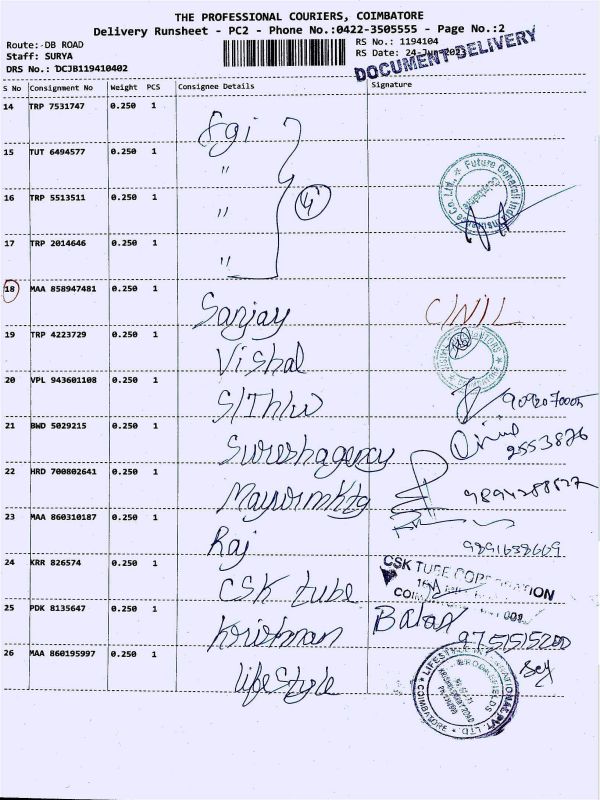 THE PROFESSIONAL COURIERS, COIMBATORE
Delivery Runsheet - PC2 - Phone No.:0422-3505555 - Page No.:2
Route:-DB ROAD
RS No.: 1194104
Staff: SURYA
RS Date: 24-Jun-202
DRS No.: DCJB119410402
DOCUMENT DELIVERY
S No Consignment No Weight PCS Consignee Details Signature
14 TRP 7531747 0.250 1
Fgi
15 TUT 6494577 0.250 1
"
16 TRP 5513511 0.250 1
" 4
Future Generali India Insurance Co. Ltd., Coimbatore
17 TRP 2014646 0.250 1
"
18 MAA 858947481 0.250 1
Sanjay C/NIL
19 TRP 4223729 0.250 1
Vishal
20 VPL 943601108 0.250 1
S/Th/w 9092070005
21 BWD 5029215 0.250 1
Sureshagency 2553876
22 HRD 700802641 0.250 1
Mayurmktg
23 MAA 860310187 0.250 1
Raj 9891638669
24 KRR 826574 0.250 1
CSK tube
CSK TUBE CORPORATION
25 PDK 8135647 0.250 1
Krishnan Balan
26 MAA 860195997 0.250 1
lifestyle
LIFESTYLE INTERNATIONAL PVT. LTD.
COIMBATORE